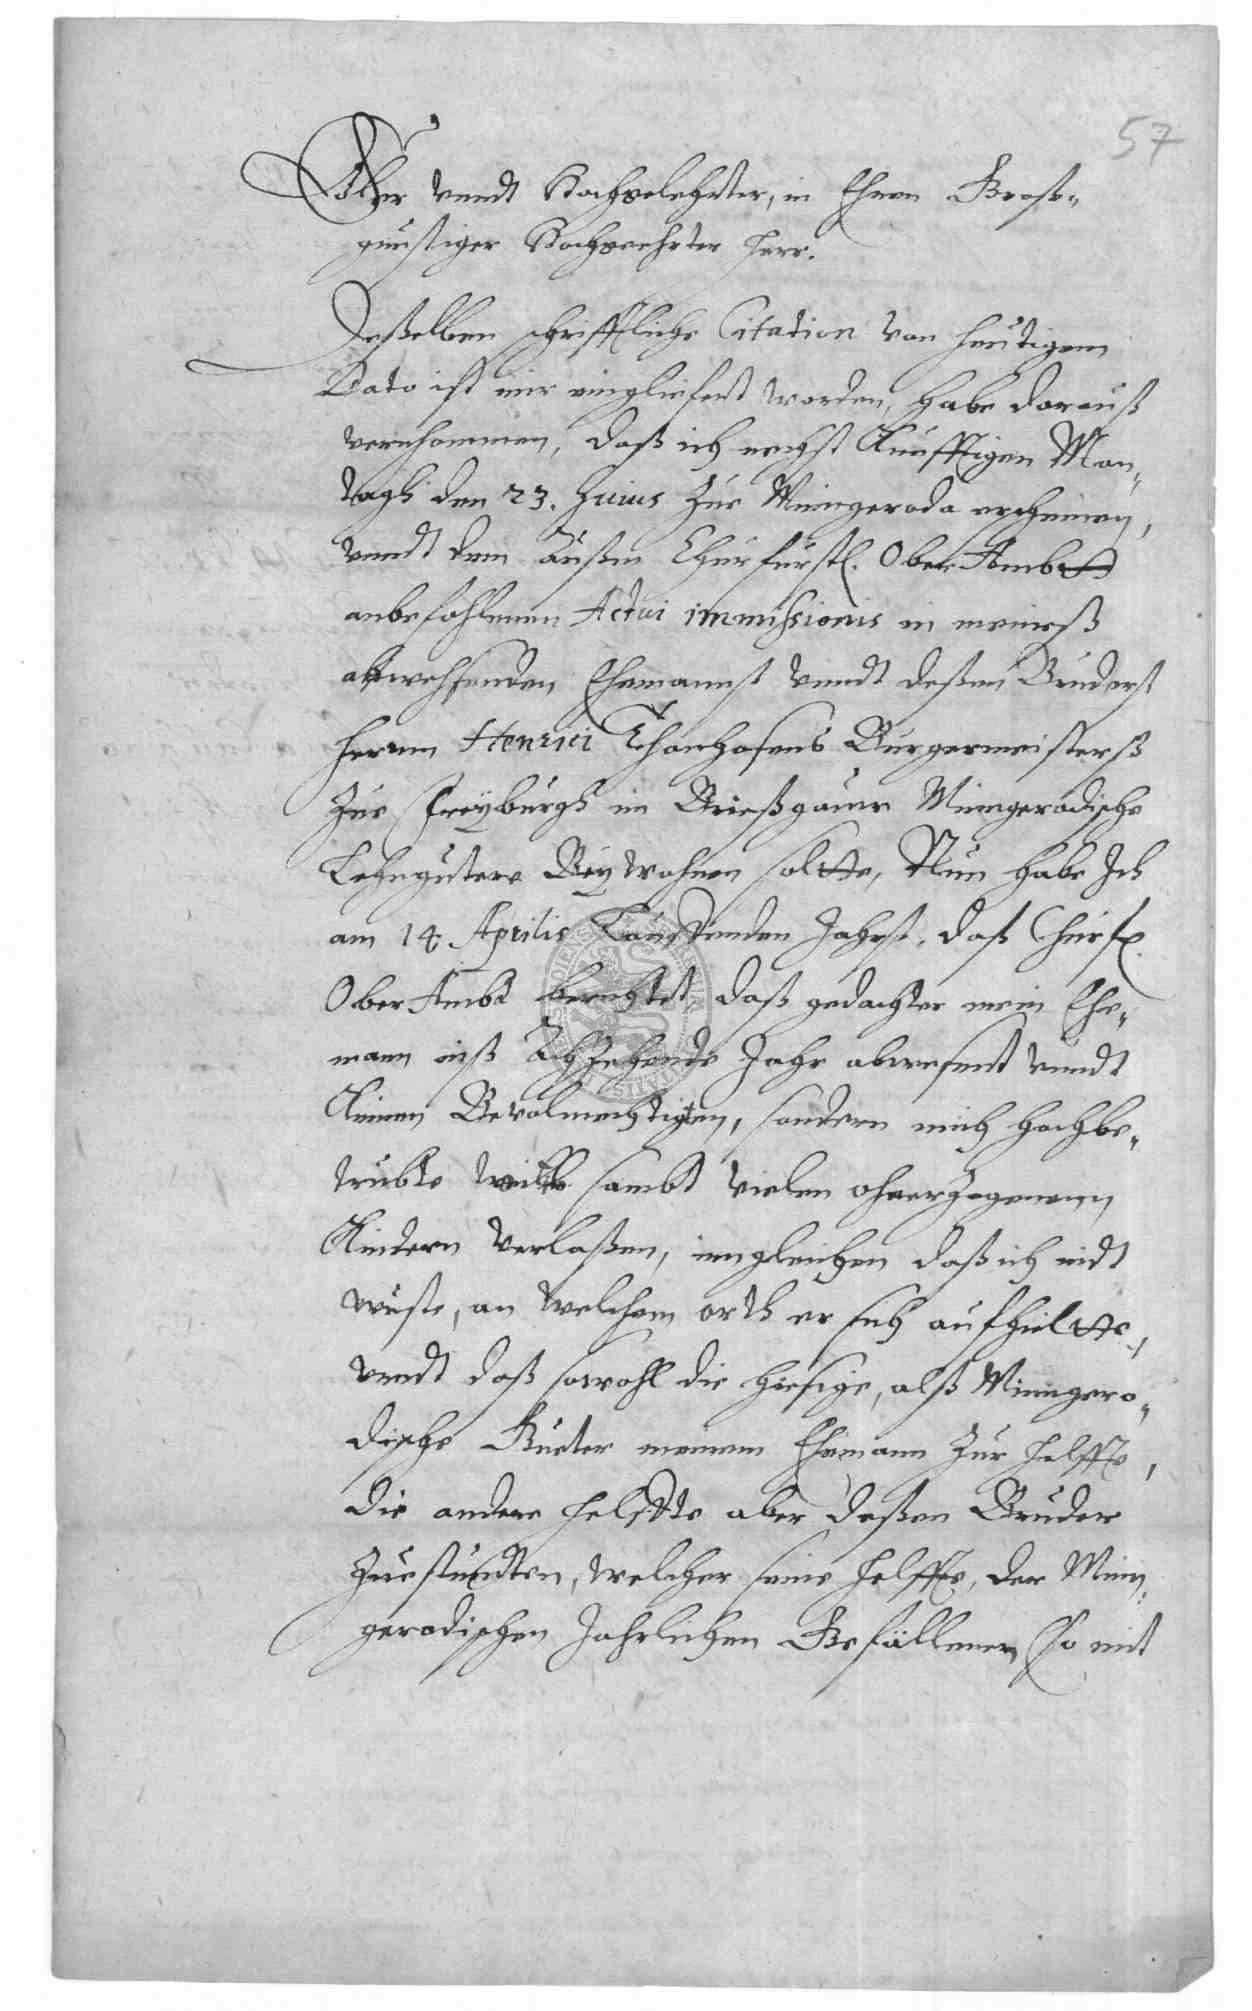 57
Edler vundt Hochgelehrter, in Ehren Groß„
günstiger Hochgeehrter Herr.
Deßelben schrifftliche Citation von heutigem
Dato ist mir eingliefert worden, habe darauß
vernhommen, daß ich nechst Künfftigen Mon„
tagh den 23. Junius zue Mingeroda erscheinen,
vundt dem außm Churfürstl. Ober Ambtt
anbefohlenen Actui immissionis in meineß
abwehsenden Ehemannst vundt deßen Bruderst
Herrn Henrici Thonhosens Burgermeisterß
zue Freyburgh im Brießgauw Mingerodische
Lehngutere Beywohnen soltte, Nun habe Ich
am 14. Aprilis Lauffenden Jahrst, daß Churf.
Ober Ambt berichtet, daß gedachter mein Ehe„
mann inß Achzehende Jahr abwesent vundt
Keinen Bevolmechtigten, sondern mich hochbe„
trubte sambt vielen ohnerzogenenn
Kindern verlaßen, inngleichen daß ich nicht
wuste, an welchem orth er sich aufhieltte,
vundt daß sowohl die hiesige, alß Mingero„
dische Gueter meinem Ehemann zur helffte,
die andere helffte aber deßen Bruder
zuestundten, welcher seine helffte, der Min„
gerodischen Jahrlichen Gefällenen so mit